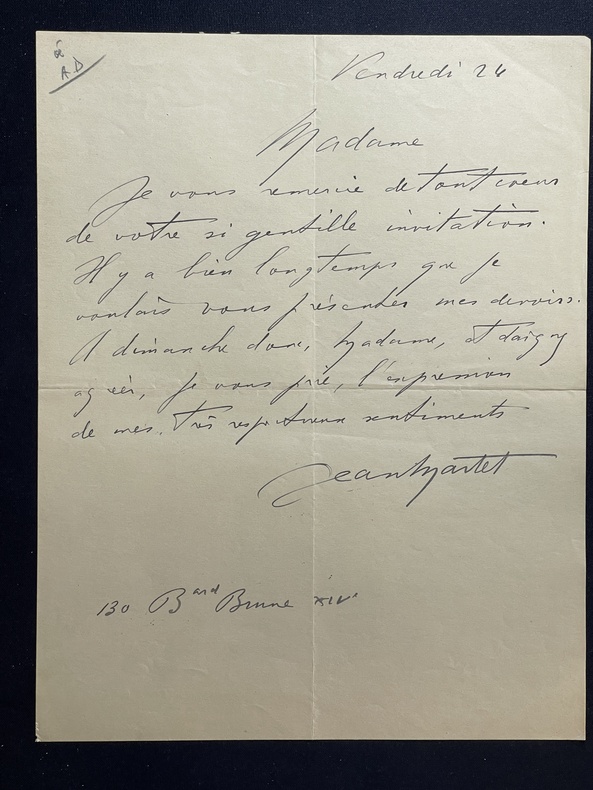 à
A.D
Vendredi 24
Madame
Je vous remercie de tout coeur
de votre si gentille invitation.
Il y a bien longtemps que je
voulais vous présenter mes devoirs.
A dimanche donc, Madame, et daignez
agréer, je vous prie, l'expression
de mes très respectueux sentiments
Jean Martet
130 Bard Brune XIVe